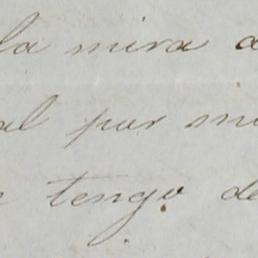 la mira
al por
tengo de